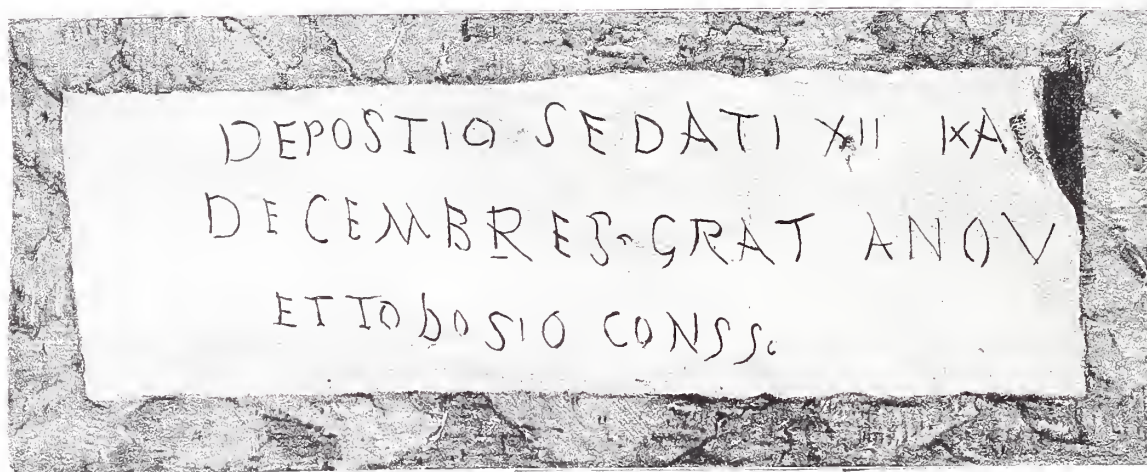 DEPOSTIO SEDATI XII KA
DECEMBRES GRAT ANO V
ET TO bOSIO CONSS